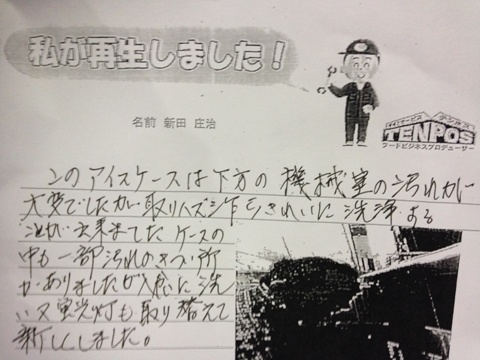 私が再生しました！
名前 新田 庄治
TENPOS
フードビジネスプロデューサー
このアイスケースは下方の機械室の汚れが
大変でしたが取りハズシ下もきれいに洗浄する
ことが出来ました ケースの
中も一部汚れのきつい所
がありましたが入念に洗
い又蛍光灯も取り替えて
新しくしました。